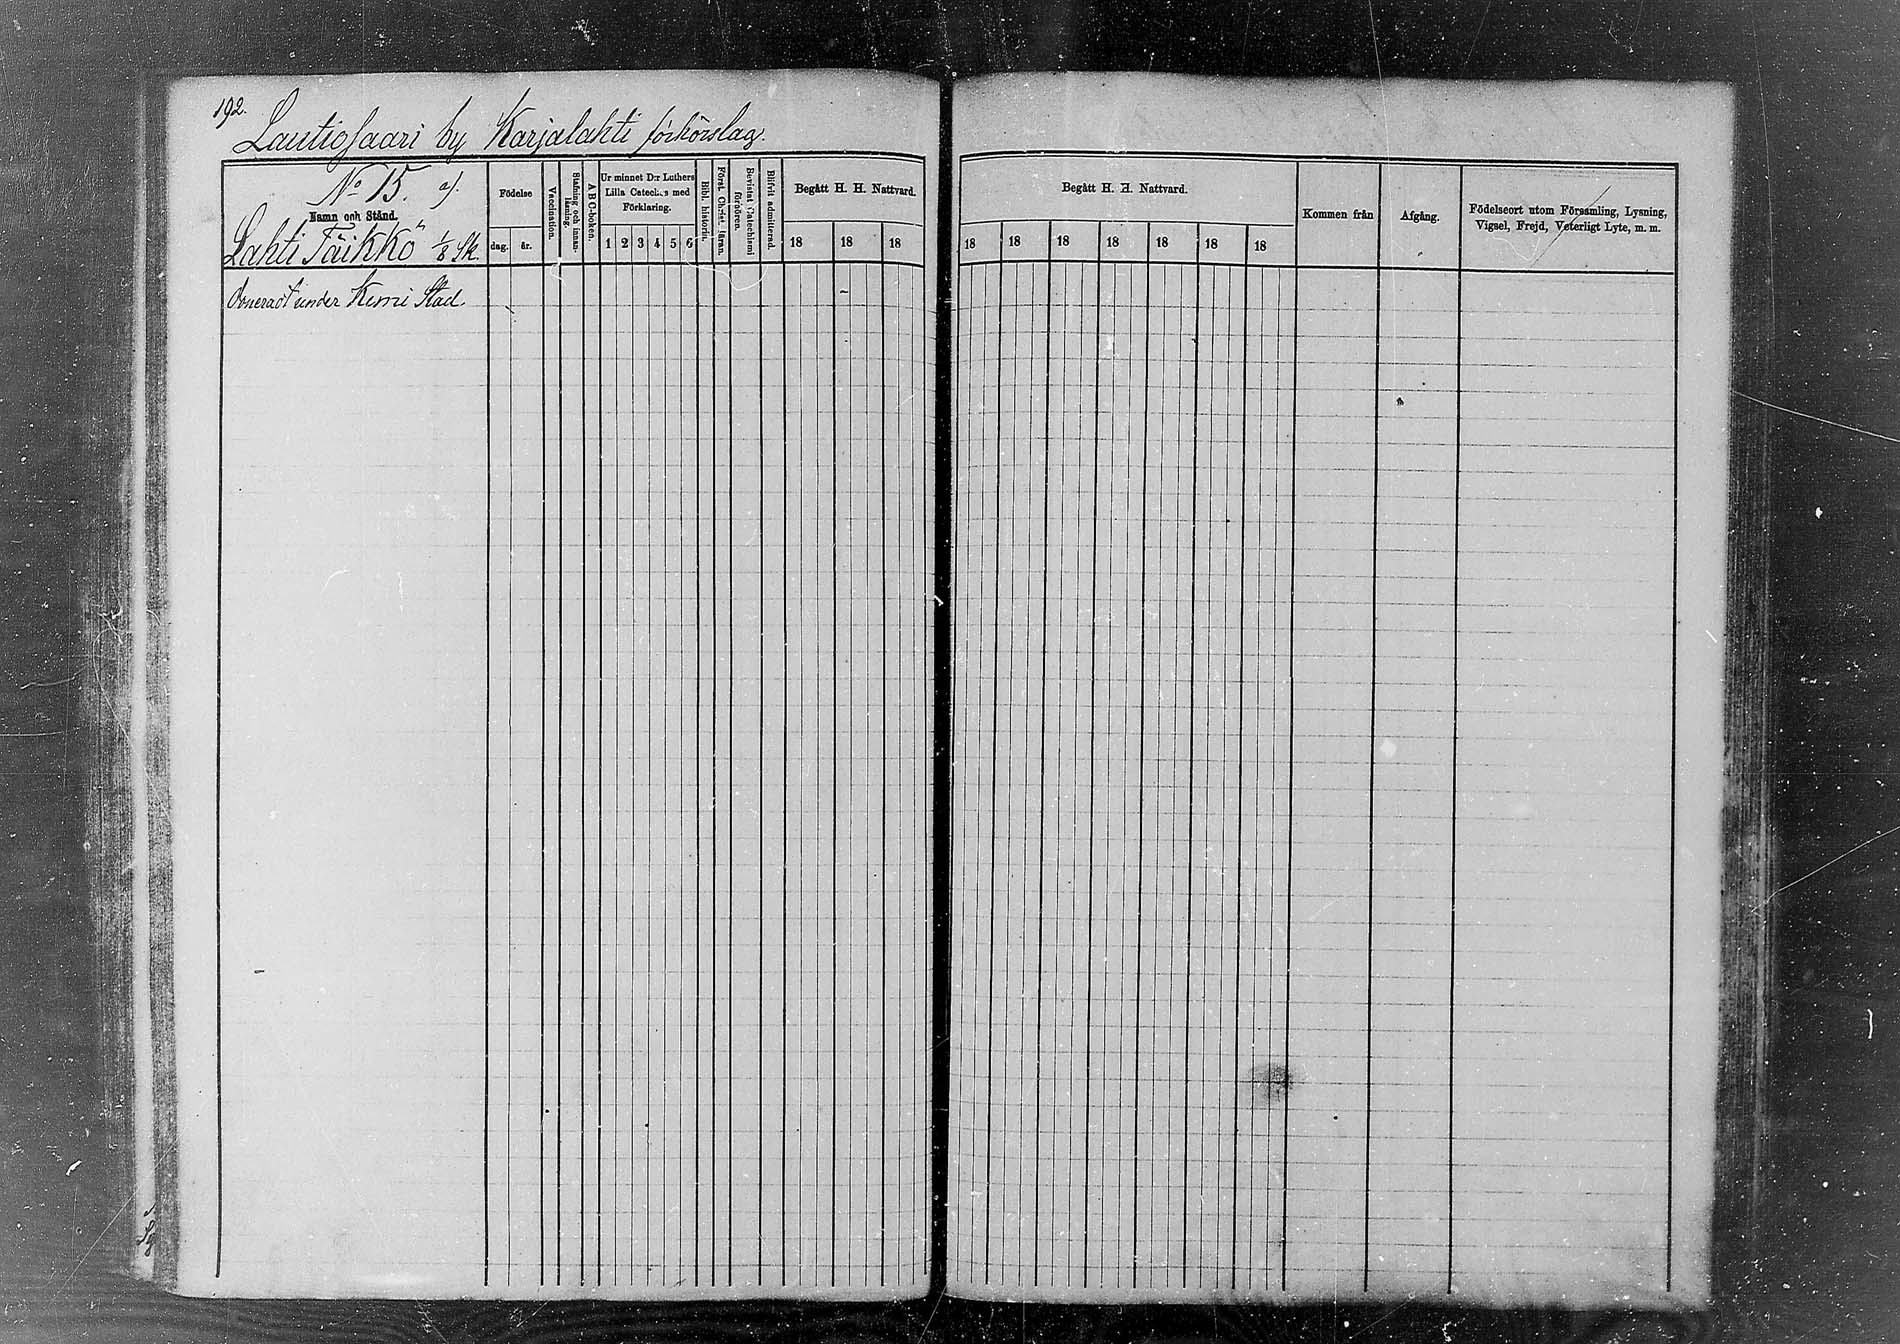 192.
Lautiosaari by Karjalahti förhörslag.
No 15. a).
Namn och Stånd.
Lahti Täikkö 1/8 Sk.
Födelse
dag. år.
Vaccination.
Stafning och innanläsning.
A B C-boken.
Ur minnet D:r Luthers
Lilla Cateches med
Förklaring.
1 2 3 4 5 6
Bibl. historia.
Först. Christ. läran.
Bevistat Catechismi förhören.
Blifvit admitterad.
Begått H. H. Nattvard.
18 18 18
under Kemi Stad.
Begått H. H. Nattvard.
18 18 18 18 18 18 18
Kommen från
Afgång.
Födelseort utom Församling, Lysning,
Vigsel, Frejd, Veterligt Lyte, m. m.